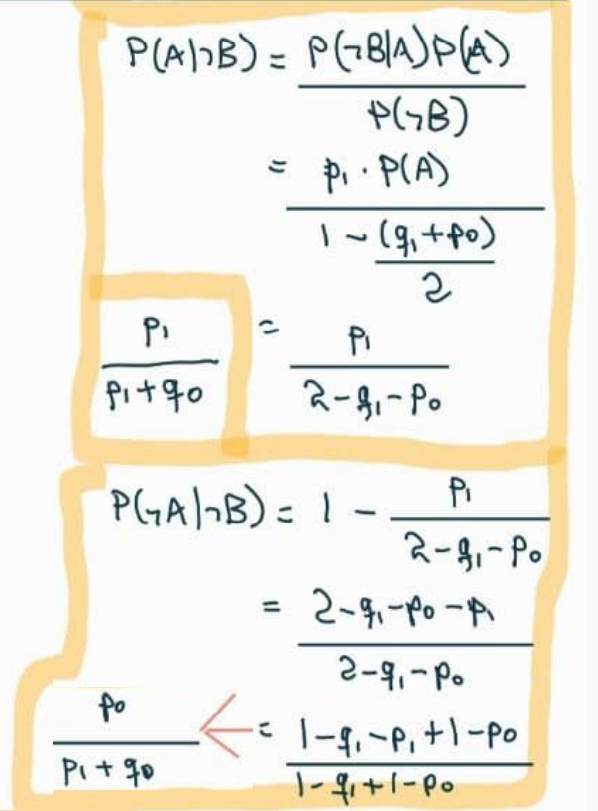 P(A|¬B) = P(¬B|A)P(A)
P(¬B)
= p₁ · P(A)
1 - (q₁+p₀)
2
p₁ = p₁
p₁+q₀ 2-q₁-p₀
P(¬A|¬B) = 1 - p₁
2-q₁-p₀
= 2-q₁-p₀-p₁
2-q₁-p₀
p₀ ← = 1-q₁-p₁+1-p₀
p₁+q₀ 1-q₁+1-p₀